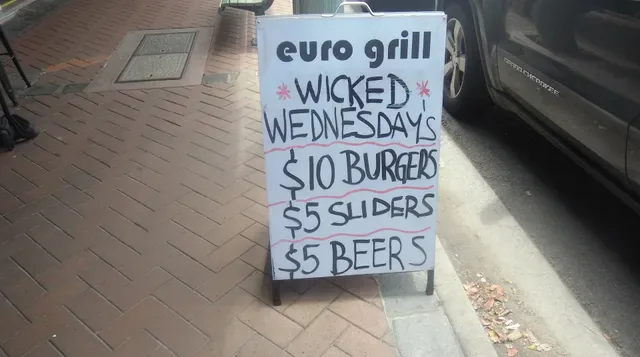 euro grill
* WICKED *
WEDNESDAY'S
$10 BURGERS
$5 SLIDERS
$5 BEERS
GRAND CHEROKEE